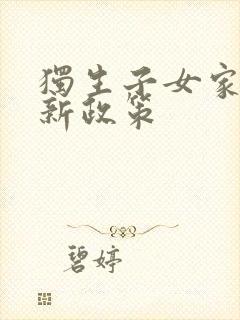 獨生子女家
新政策
碧婷